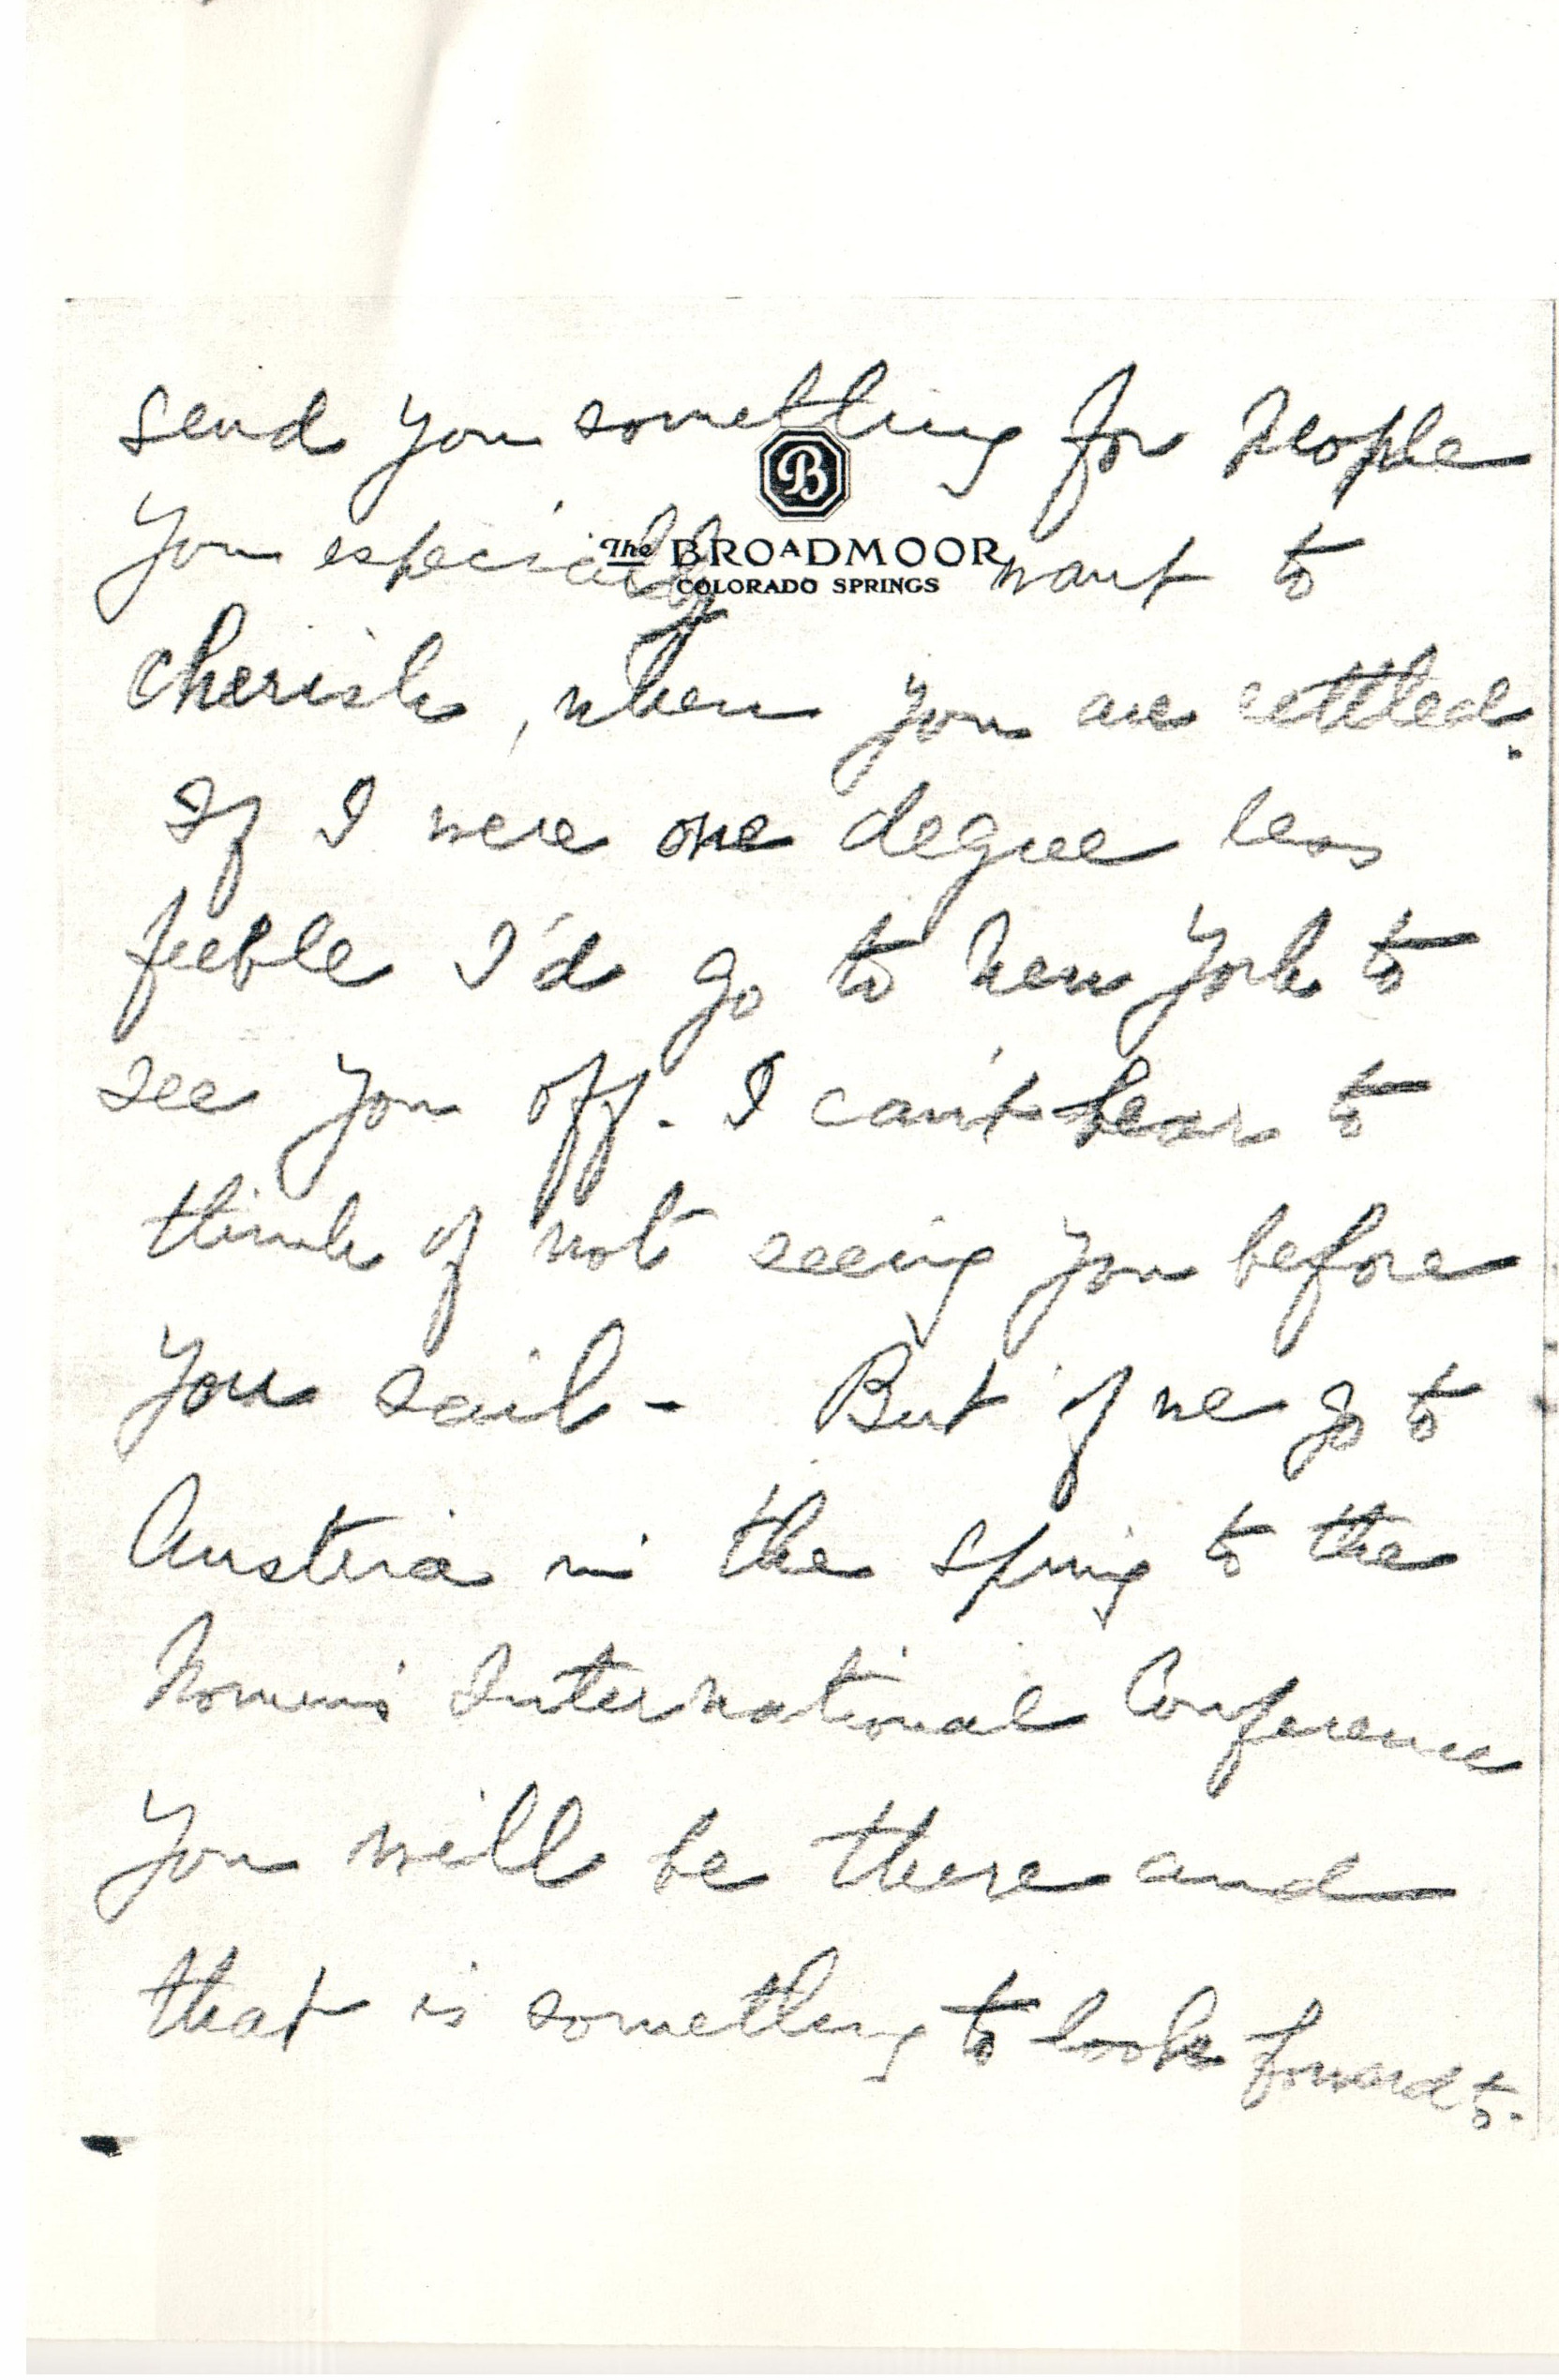 send you something for people
B
The BROADMOOR
COLORADO SPRINGS
you especially want to
cherish, when you are settled.
If I were one degree less
feeble I'd go to New York to
see you off. I can't bear to
think of not seeing you before
you sail - But if we go to
Austria in the spring to the
Women's International Conference
you will be there and
that is something to look forward to.